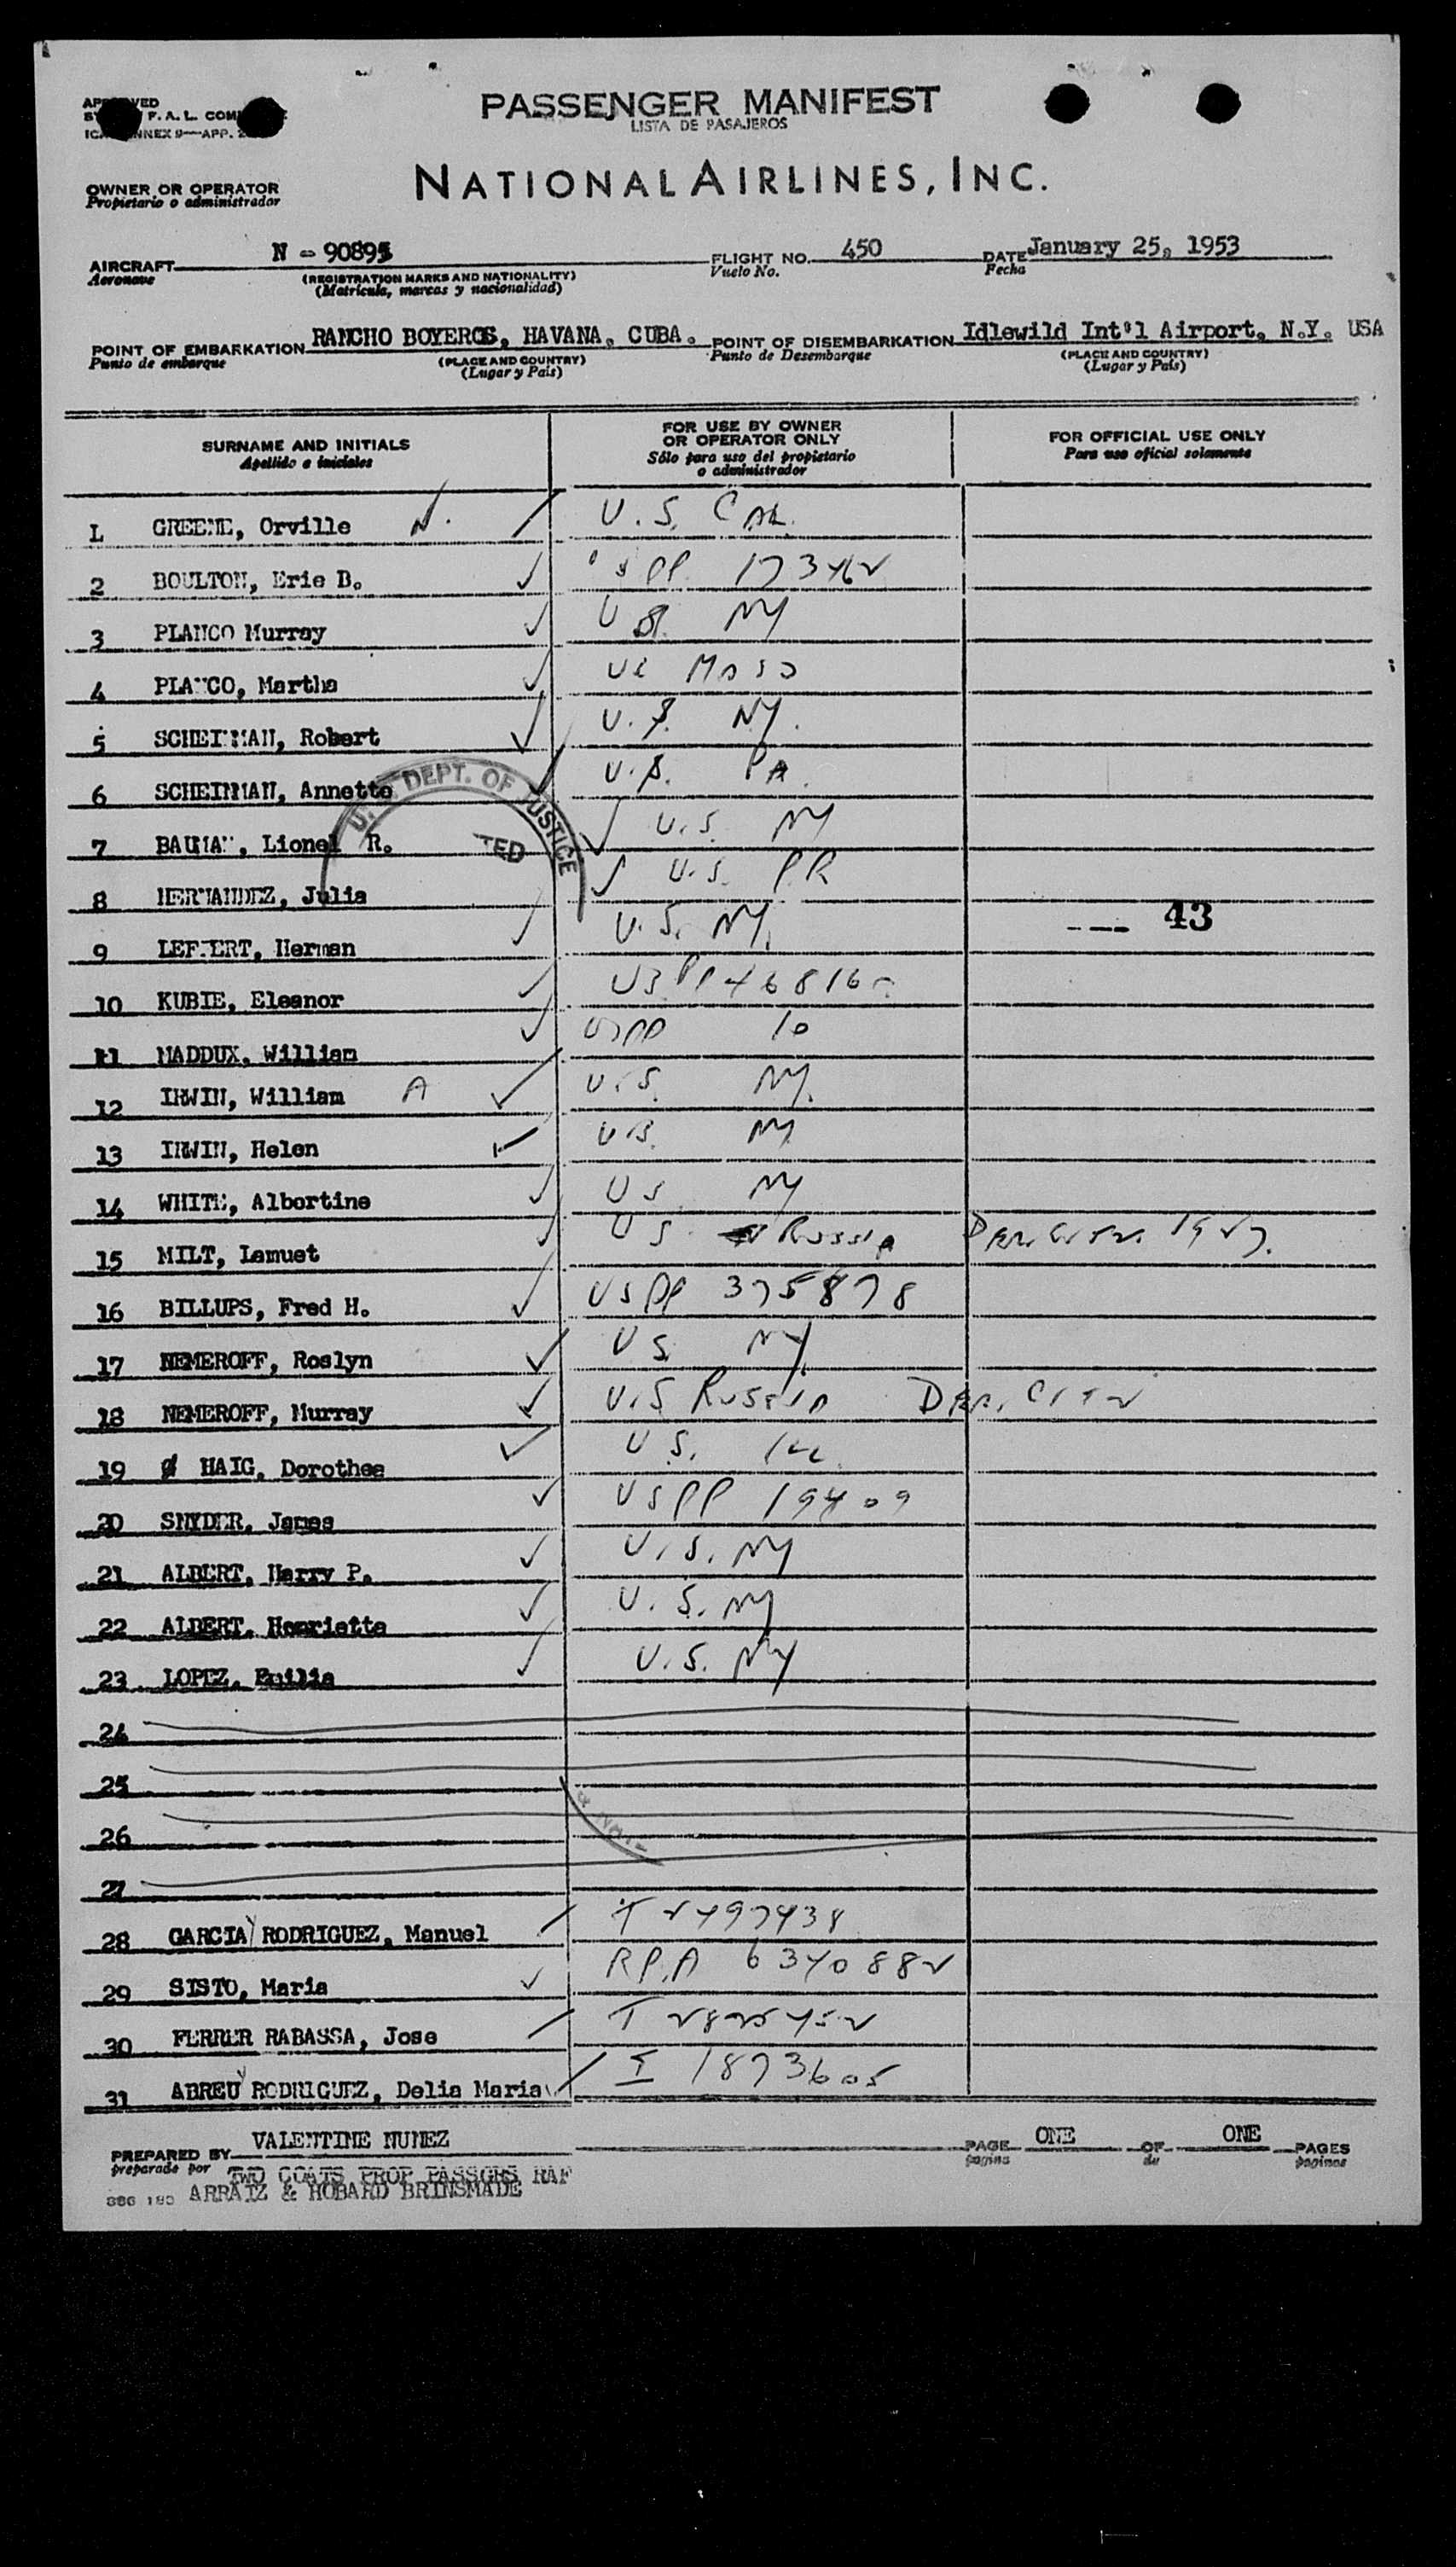 PASSENGER MANIFEST
LISTA DE PASAJEROS
NATIONAL AIRLINES, INC.
OWNER OR OPERATOR
Propietario o administrador
AIRCRAFT N - 90895 FLIGHT NO. 450 DATE January 25, 1953
Aeronave (REGISTRATION MARKS AND NATIONALITY) Vuelo No. Fecha
(Matrícula, marcas y nacionalidad)
POINT OF EMBARKATION RANCHO BOYEROS, HAVANA, CUBA. POINT OF DISEMBARKATION Idlewild Int'l Airport, N.Y. USA
Punto de embarque (PLACE AND COUNTRY) Punto de Desembarque (PLACE AND COUNTRY)
(Lugar y País) (Lugar y País)
SURNAME AND INITIALS FOR USE BY OWNER OR OPERATOR ONLY FOR OFFICIAL USE ONLY
Apellido e iniciales Sólo para uso del propietario o administrador Para uso oficial solamente
1 GREENE, Orville N. U.S. CAL.
2 BOULTON, Eric B.
3 PLANCO Murray US NY
4 PLANCO, Martha US Mass
5 SCHEINMAN, Robert U.S. NY.
6 SCHEINMAN, Annette U.S. PA.
U.S. DEPT. OF JUSTICE
7 BAUMAN, Lionel R. U.S. NY
8 HERNANDEZ, Julia U.S. P.R
43
9 Herman U.S. NY.
10 KUBIE, Eleanor
11 MADDUX, William USPP 10
12 IRWIN, William A U.S. NY.
13 IRWIN, Helen U.S. NY
14 WHITE, Albertine US NY
15 MILT, Lamuet US Russia
16 BILLUPS, Fred H. USPP 375878
17 NEMEROFF, Roslyn US NY
18 NEMEROFF, Murray U.S Russia
19 HAIG, Dorothea U.S.
20 SNYDER, James USPP 19409
21 ALBERT, Harry P. U.S. NY
22 ALBERT, Henriette U.S. NY
23 LOPEZ, Emilia U.S. NY
24
25
26
27
28 GARCIA y RODRIGUEZ, Manuel
29 SISTO, Maria
30 FERRER RABASSA, Jose
31 ABREU y RODRIGUEZ, Delia Maria I 1873605
PREPARED BY VALENTINE NUNEZ PAGE ONE OF ONE PAGES
preparado por página de páginas
TWO COATS PROP PASSGRS RAF
ARRAIZ & HOBARD BRINSMADE